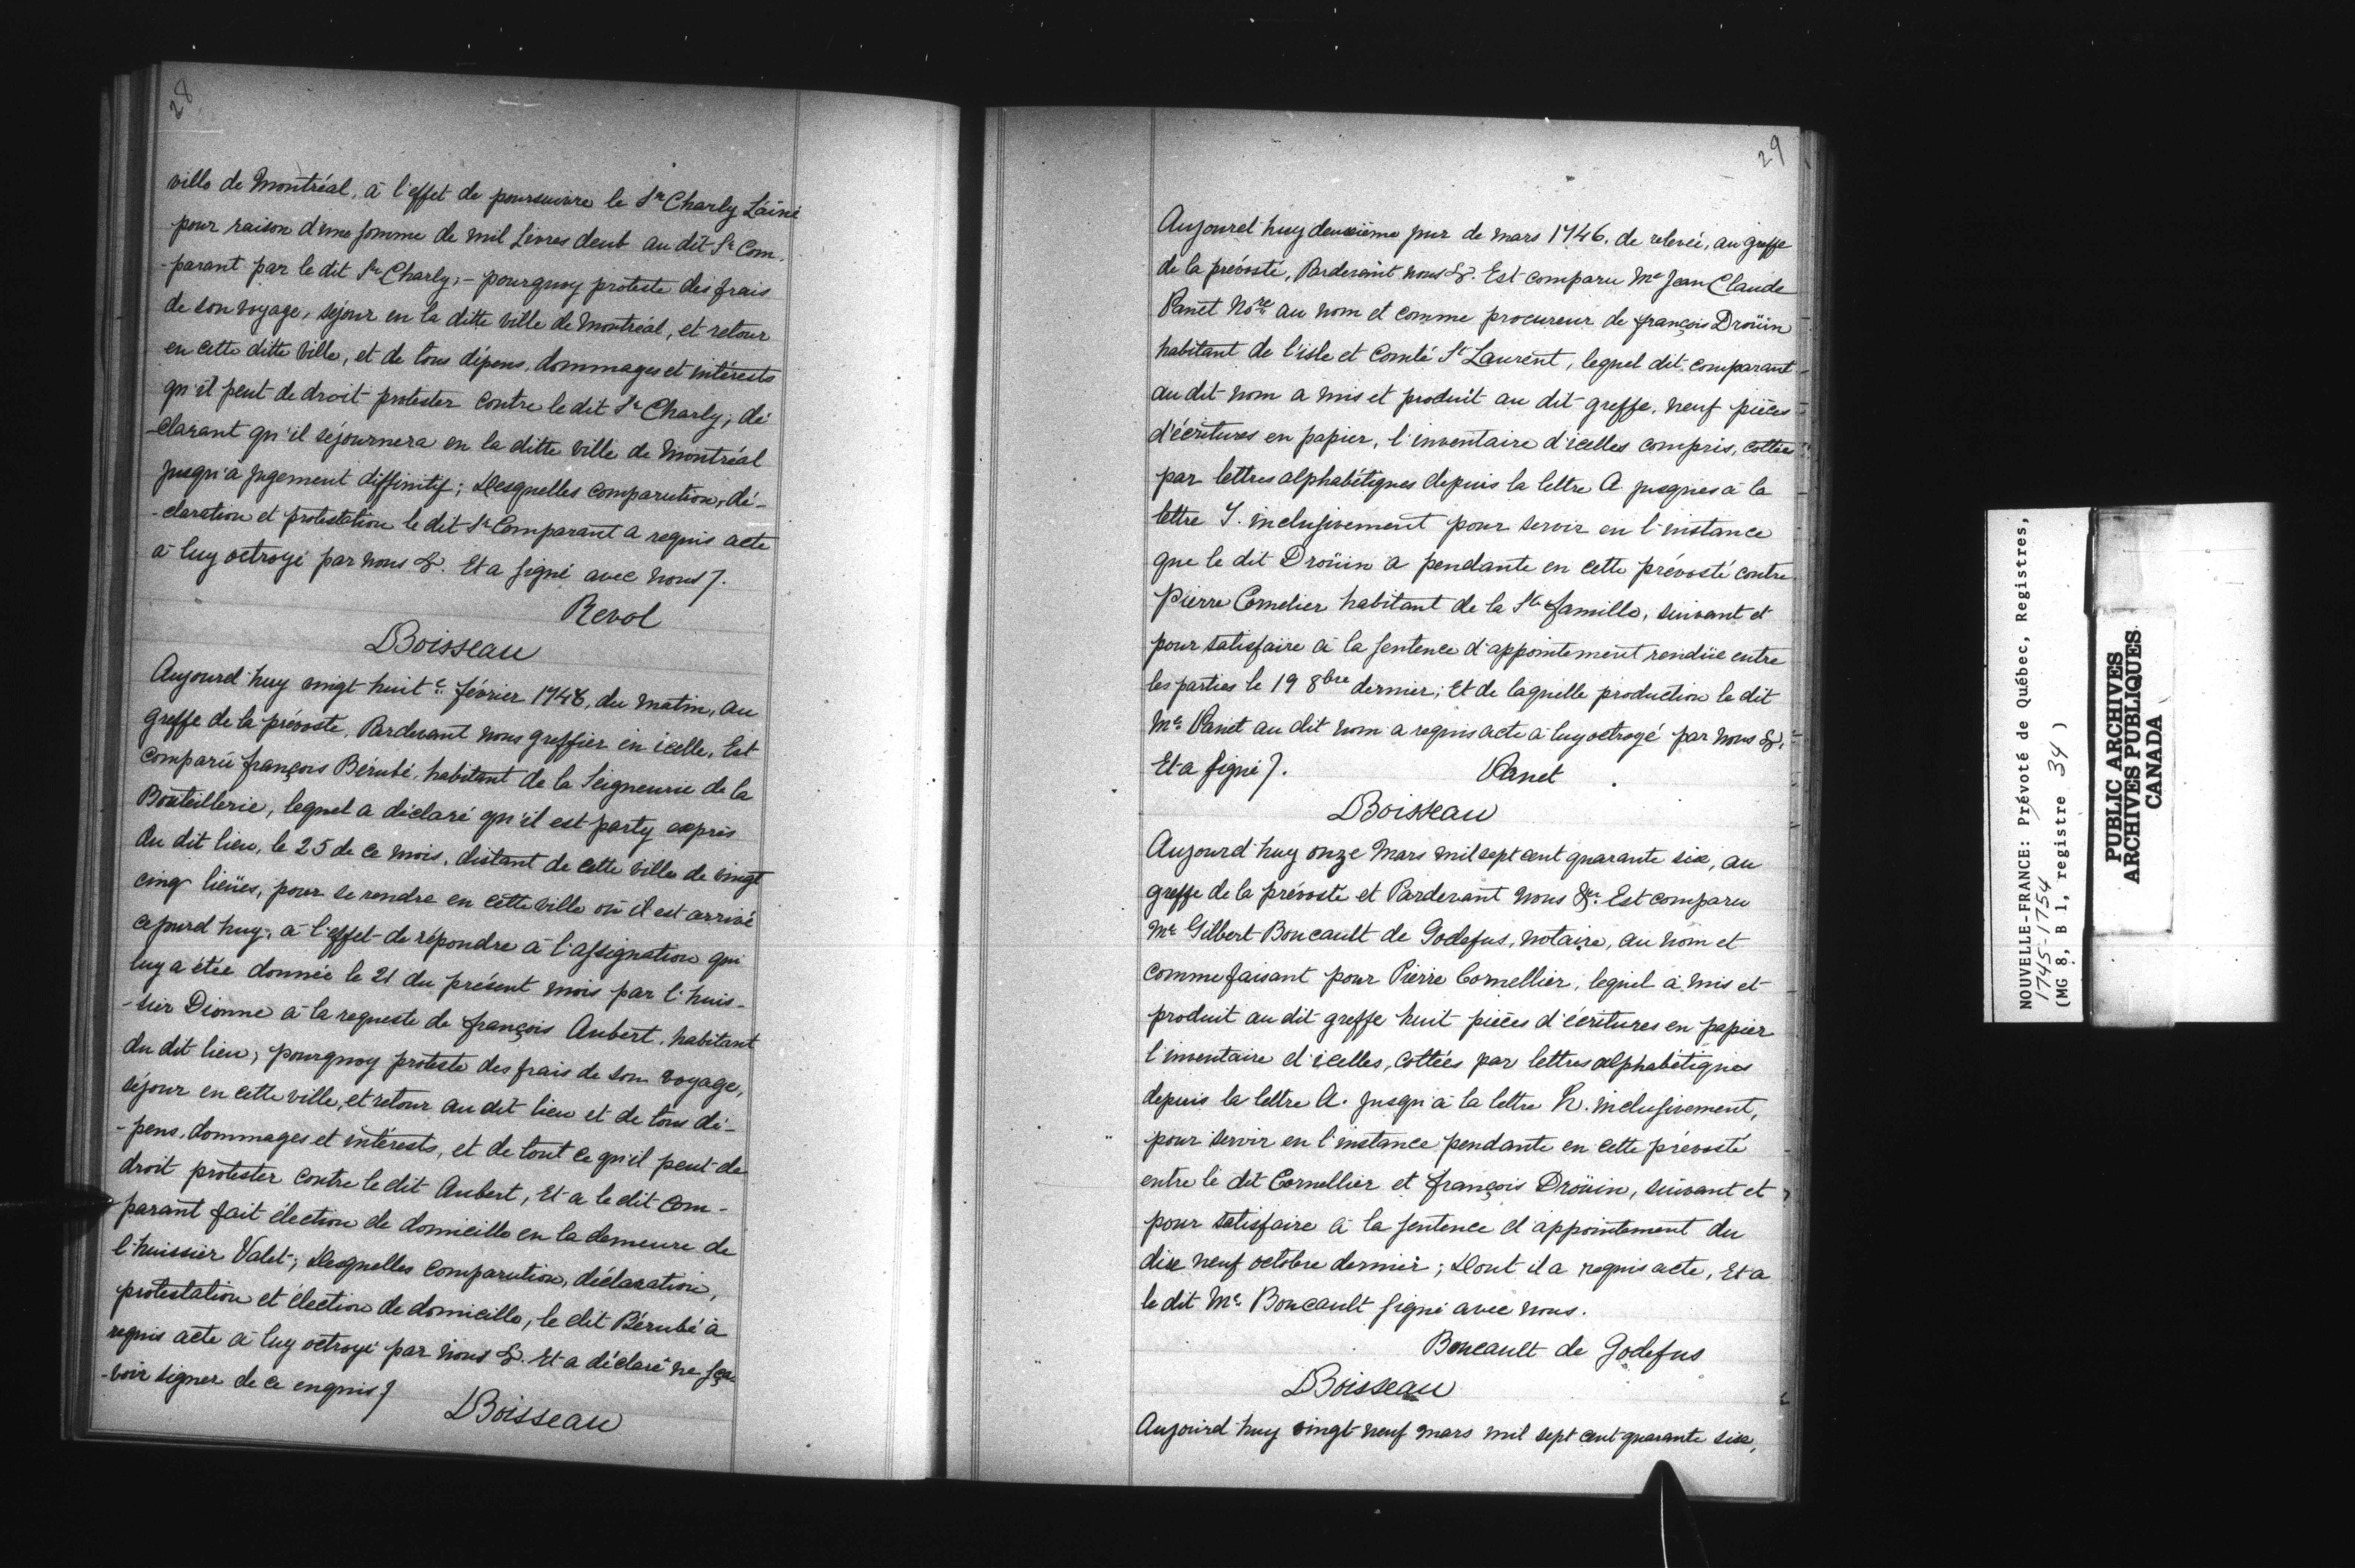 28
ville de Montréal, à l'effet de poursuivre le Sr. Charly Lainé
pour raison d'une somme de mil Livres deub au dit Sr. Com-
-parant par le dit Sr. Charly; - pourquoy proteste des frais
de son voyage, séjour en la ditte ville de Montréal, et retour
en cette ditte Ville, et de tous dépens, dommages et intérests
qu'il peut de droit protester contre le dit Sr. Charly; dé
-clarant qu'il séjournera en la ditte ville de Montréal
jusqu'à jugement diffinitif; Desquelles comparution, dé-
-claration et protestation le dit Sr. Comparant a requis acte
à luy octroyé par nous &. Et a signé avec nous /.
Revol
Boisseau
Aujourd'huy vingt huit e. février 1746, du matin, au
greffe de la prévosté, Pardevant nous greffier en icelle, Est
comparu françois Bérubé, habitant de la Seigneurie de la
Bouteillerie, lequel a déclaré qu'il est party exprès
du dit lieu, le 25 de ce mois, distant de cette ville de vingt
cinq lieües, pour se rendre en cette ville où il est arrivé
cejourd'huy, à l'effet de répondre à l'assignation qui
luy a étée donnée le 21 du présent mois par l'huis-
-sier Dionne à la requeste de françois Aubert, habitant
du dit lieu, pourquoy proteste des frais de son voyage,
séjour en cette ville, et retour au dit lieu et de tous dé-
-pens, dommages et intérests, et de tout ce qu'il peut de
droit protester contre le dit Aubert, Et a le dit com-
-parant fait élection de domicille en la demeure de
l'huissier Valet; Desquelles comparution, déclaration,
protestation et élection de domicille, le dit Bérubé a
requis acte à luy octroyé par nous &. Et a déclaré ne sça
-voir signer de ce enquis /
Boisseau
29
Aujourd'huy deuxième jour de mars 1746. de relevée, au greffe
de la prévosté, Pardevant nous &. Est comparu Me Jean Claude
Panet Nore. au nom et comme procureur de françois Droüin
habitant de l'isle et Comté St Laurent, lequel dit comparant
au dit nom a mis et produit au dit greffe, neuf pièces
d'écritures en papier, l'inventaire d'icelles compris, cottées
par lettres alphabétiques depuis la lettre A jusques à la
lettre I. inclusivement pour servir en l'instance
que le dit Droüin a pendante en cette prévosté contre
Pierre Cornelier habitant de la Ste famille, suivant et
pour satisfaire à la sentence d'appointement rendüe entre
les parties le 19 8bre dernier; Et de laquelle production le dit
Me. Panet au dit nom a requis acte à luy octroyé par nous &.
Et a signé /.
Panet
Boisseau
Aujourd'huy onze Mars mil sept cent quarante six, au
greffe de la prévosté et Pardevant nous &a. Est comparu
Me. Gilbert Boucault de Godefus, notaire, au nom et
comme faisant pour Pierre Cornellier, lequel a mis et
produit au dit greffe huit pièces d'écritures en papier
l'inventaire d'icelles, cottées par lettres alphabétiques
depuis la lettre A. jusqu'à la lettre H. inclusivement,
pour servir en l'instance pendante en cette prévosté
entre le dit Cornellier et françois Droüin, suivant et
pour satisfaire à la sentence d'appointement du
dix neuf octobre dernier; Dont il a requis acte, Et a
le dit Me. Boucault signé avec nous.
Boucault de Godefus
Boisseau
Aujourd'huy vingt neuf mars mil sept cent quarante six,
NOUVELLE-FRANCE: Prévoté de Québec, Registres,
1745-1754
(MG 8, B 1, registre 34 )
PUBLIC ARCHIVES
ARCHIVES PUBLIQUES
CANADA